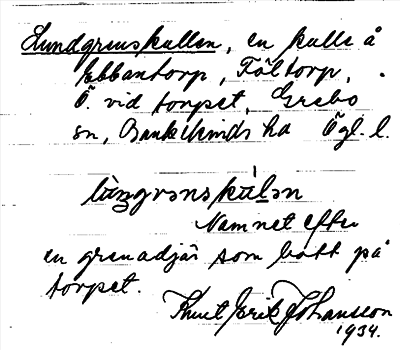 Lundgrenskullen, en kulle å
Ebbantorp, Föltorp,
Ö. vid torpet, Grebo
sn, Bankekinds hd Ögl. l.
Namnet efter
en grenadjär som bott på
torpet.
Knut Erik Johansson
1934.